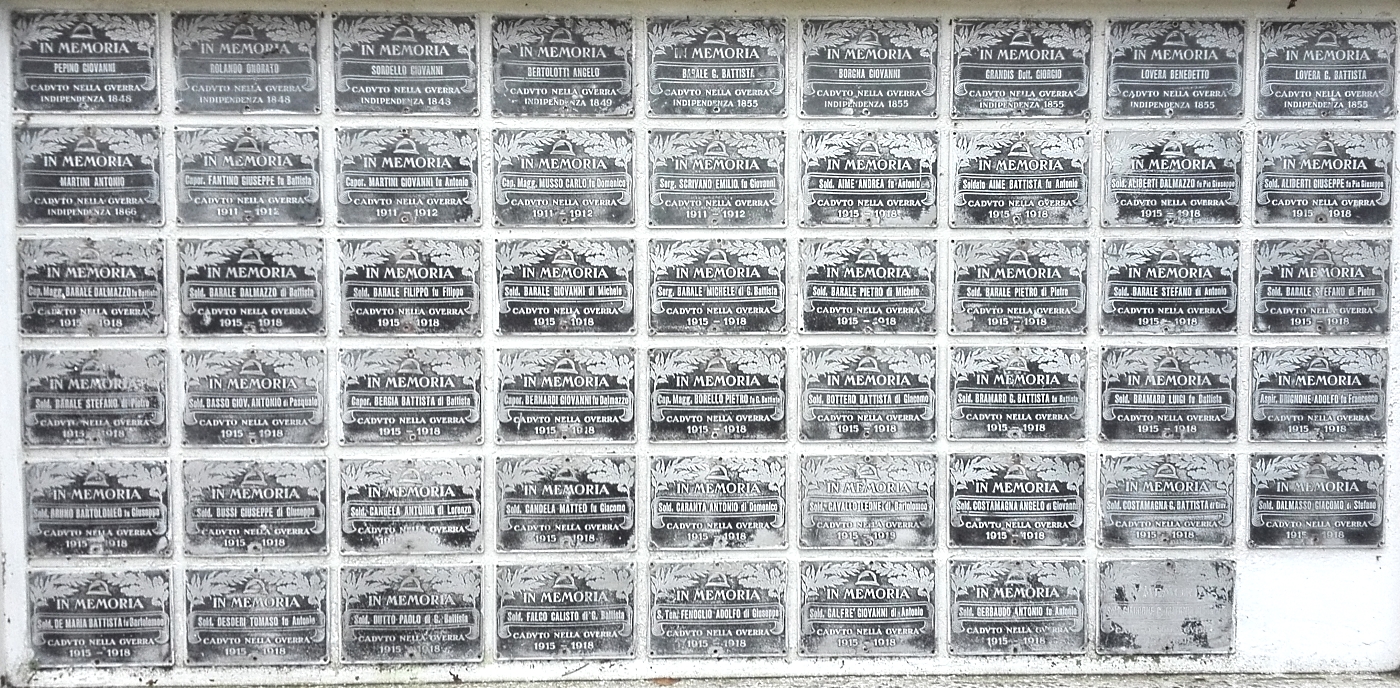 IN MEMORIA
PEPINO GIOVANNI
CADVTO NELLA GVERRA
INDIPENDENZA 1848
IN MEMORIA
ROLANDO ONORATO
CADVTO NELLA GVERRA
INDIPENDENZA 1848
IN MEMORIA
SORDELLO GIOVANNI
CADVTO NELLA GVERRA
INDIPENDENZA 1848
IN MEMORIA
BERTOLOTTI ANGELO
CADVTO NELLA GVERRA
INDIPENDENZA 1849
IN MEMORIA
BARALE G. BATTISTA
CADVTO NELLA GVERRA
INDIPENDENZA 1855
IN MEMORIA
BORGNA GIOVANNI
CADVTO NELLA GVERRA
INDIPENDENZA 1855
IN MEMORIA
GRANDIS Dott. GIORGIO
CADVTO NELLA GVERRA
INDIPENDENZA 1855
IN MEMORIA
LOVERA BENEDETTO
CADVTO NELLA GVERRA
INDIPENDENZA 1855
IN MEMORIA
LOVERA G. BATTISTA
CADVTO NELLA GVERRA
INDIPENDENZA 1855
IN MEMORIA
MARTINI ANTONIO
CADVTO NELLA GVERRA
INDIPENDENZA 1866
IN MEMORIA
Capor. FANTINO GIUSEPPE fu Battista
CADVTO NELLA GVERRA
1911 - 1912
IN MEMORIA
Capor. MARTINI GIOVANNI fu Antonio
CADVTO NELLA GVERRA
1911 - 1912
IN MEMORIA
Cap. Magg. MUSSO CARLO fu Domenico
CADVTO NELLA GVERRA
1911 - 1912
IN MEMORIA
Serg. SCRIVANO EMILIO fu Giovanni
CADVTO NELLA GVERRA
1911 - 1912
IN MEMORIA
Sold. AIME ANDREA fu Antonio
CADVTO NELLA GVERRA
1915 - 1918
IN MEMORIA
Soldato AIME BATTISTA fu Antonio
CADVTO NELLA GVERRA
1915 - 1918
IN MEMORIA
Sold. ALIBERTI DALMAZZO fu Pio Giuseppe
CADVTO NELLA GVERRA
1915 - 1918
IN MEMORIA
Sold. ALIBERTI GIUSEPPE fu Pio Giuseppe
CADVTO NELLA GVERRA
1915 - 1918
IN MEMORIA
Cap. Magg. BARALE DALMAZZO fu Battista
CADVTO NELLA GVERRA
1915 - 1918
IN MEMORIA
Sold. BARALE DALMAZZO di Battista
CADVTO NELLA GVERRA
1915 - 1918
IN MEMORIA
Sold. BARALE FILIPPO fu Filippo
CADVTO NELLA GVERRA
1915 - 1918
IN MEMORIA
Sold. BARALE GIOVANNI di Michele
CADVTO NELLA GVERRA
1915 - 1918
IN MEMORIA
Serg. BARALE MICHELE di G. Battista
CADVTO NELLA GVERRA
1915 - 1918
IN MEMORIA
Sold. BARALE PIETRO di Michele
CADVTO NELLA GVERRA
1915 - 1918
IN MEMORIA
Sold. BARALE PIETRO di Pietro
CADVTO NELLA GVERRA
1915 - 1918
IN MEMORIA
Sold. BARALE STEFANO di Antonio
CADVTO NELLA GVERRA
1915 - 1918
IN MEMORIA
Sold. BARALE STEFANO di Pietro
CADVTO NELLA GVERRA
1915 - 1918
IN MEMORIA
Sold. BARALE STEFANO di Pietro
CADVTO NELLA GVERRA
1915 - 1918
IN MEMORIA
Sold. BASSO GIOV. ANTONIO di Pasquale
CADVTO NELLA GVERRA
1915 - 1918
IN MEMORIA
Capor. BERGIA BATTISTA di Battista
CADVTO NELLA GVERRA
1915 - 1918
IN MEMORIA
Capor. BERNARDI GIOVANNI fu Dalmazzo
CADVTO NELLA GVERRA
1915 - 1918
IN MEMORIA
Cap. Magg. BORELLO PIETRO fu G. Battista
CADVTO NELLA GVERRA
1915 - 1918
IN MEMORIA
Sold. BOTTERO BATTISTA di Giacomo
CADVTO NELLA GVERRA
1915 - 1918
IN MEMORIA
Sold. BRAMARD G. BATTISTA fu Battista
CADVTO NELLA GVERRA
1915 - 1918
IN MEMORIA
Sold. BRAMARD LUIGI fu Battista
CADVTO NELLA GVERRA
1915 - 1918
IN MEMORIA
Aspir. BRIGNONE ADOLFO fu Francesco
CADVTO NELLA GVERRA
1915 - 1918
IN MEMORIA
Sold. BRUNO BARTOLOMEO fu Giuseppe
CADVTO NELLA GVERRA
1915 - 1918
IN MEMORIA
Sold. BUSSI GIUSEPPE di Giuseppe
CADVTO NELLA GVERRA
1915 - 1918
IN MEMORIA
Sold. CANDELA ANTONIO di Lorenzo
CADVTO NELLA GVERRA
IN MEMORIA
Sold. CANDELA MATTEO fu Giacomo
CADVTO NELLA GVERRA
1915 - 1918
IN MEMORIA
Sold. CARANTA ANTONIO di Domenico
CADVTO NELLA GVERRA
1915 - 1918
IN MEMORIA
Sold. CAVALLO LEONE di Bartolomeo
CADVTO NELLA GVERRA
1915 - 1918
IN MEMORIA
Sold. COSTAMAGNA ANGELO di Giovanni
CADVTO NELLA GVERRA
1915 - 1918
IN MEMORIA
Sold. COSTAMAGNA G. BATTISTA di Giov.
CADVTO NELLA GVERRA
1915 - 1918
IN MEMORIA
Sold. DALMASSO GIACOMO di Stefano
CADVTO NELLA GVERRA
1915 - 1918
IN MEMORIA
Sold. DE MARIA BATTISTA fu Bartolomeo
CADVTO NELLA GVERRA
1915 - 1918
IN MEMORIA
Sold. DESDERI TOMASO fu Antonio
CADVTO NELLA GVERRA
1915 - 1918
IN MEMORIA
Sold. DUTTO PAOLO di G. Battista
CADVTO NELLA GVERRA
1915 - 1918
IN MEMORIA
Sold. FALCO CALISTO di G. Battista
CADVTO NELLA GVERRA
1915 - 1918
IN MEMORIA
S. Ten. FENOGLIO ADOLFO di Giuseppe
CADVTO NELLA GVERRA
1915 - 1918
IN MEMORIA
Sold. GALFRE' GIOVANNI di Antonio
CADVTO NELLA GVERRA
1915 - 1918
IN MEMORIA
Sold. GERBAUDO ANTONIO fu Antonio
CADVTO NELLA GVERRA
1915 - 1918